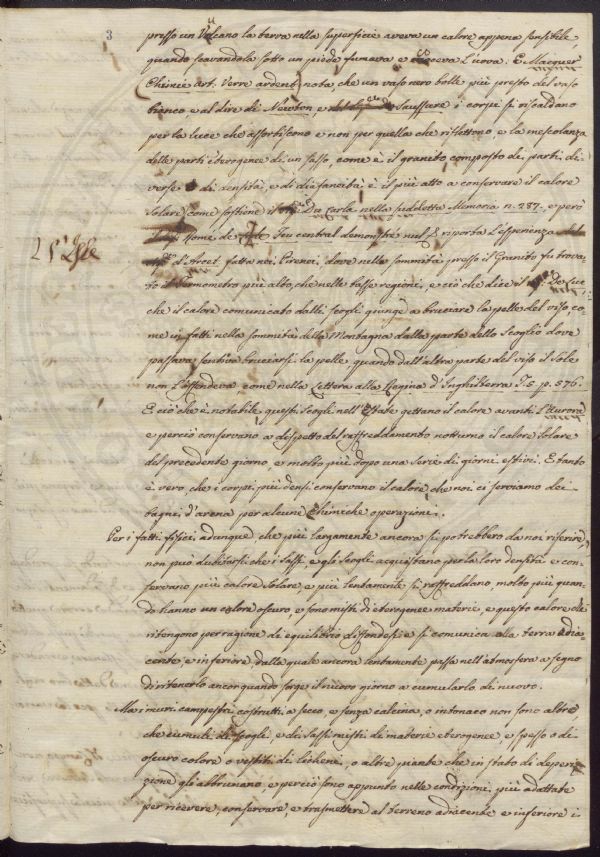 3
presso un Vulcano la terra nella superficie aveva un calore appena sensibile,
quando scavandola sotto un piede fumava e coceva l'uova. E Macquer
Chimie art. Verre ardent nota, che un vaso nero bolle più presto del vaso
bianco, e al dire di Newton, e Saussure i corpi si riscaldano
per la luce che assorbiscono e non per quella che riflettono, e la mescolanza
delle parti eterogenee di un sasso, come è il granito composto di parti di-
verse di densità, e di diafaneità è il più atto a conservare il calore
Solare come sostiene il De Carla nella suddetta Memoria n. 287. e però
Rome de Feu central demonstré nul riporta l'esperienza
d'Arcet fatta nei Pirenei, dove nella sommità presso il Granito fu trova-
to il Termometro più alto, che nelle basse regioni, e ciò che dice il De Luc
che il calore comunicato dalli scogli giunge a bruciare la pelle del viso, co-
me in fatti nella sommità della Montagna dalla parte dello Scoglio dove
passava sentiva bruciarsi la pelle, quando dall'altra parte del viso il Sole
non l'offendeva come nella Lettera alla Regina d'Inghilterra T. 5. p. 576.
E ciò che è notabile questi Scogli nell'Estate gettano il calore avanti l'Aurora
e perciò conservano a dispetto del raffreddamento notturno il calore Solare
del precedente giorno, e molto più dopo una serie di giorni estivi. E tanto
è vero, che i corpi più densi conservano il calore che noi ci serviamo dei
bagni d'arena per alcune Chimiche operazioni.
Per i fatti fisici adunque, che più largamente ancora si potrebbero da noi riferire,
non può dubitarsi che i sassi e gli Scogli acquistano per la loro densità e con-
servano più calore Solare, e più lentamente si raffreddano, molto più quan-
do hanno un colore oscuro, e sono misti di eterogenee materie, e questo calore che
ritengono per ragione di equilibrio diffondesi e si comunica alla terra adia-
cente, e inferiore dalla quale ancora lentamente passa nell'atmosfera a segno
di ritenerlo ancor quando sorge il nuovo giorno a cumularlo di nuovo.
Ma i muri campestri costrutti a secco, e senza calcina, o intonaco non sono altro,
che cumuli di scogli, e di sassi misti di materie eterogenee, e spesso o di
oscuro colore o vestiti di licheni, o altre piante che in stato di disperi-
zione gli abbrunano e perciò sono appunto nelle condizioni più adattate
per ricevere, conservare, e trasmettere al terreno adiacente e inferiore i